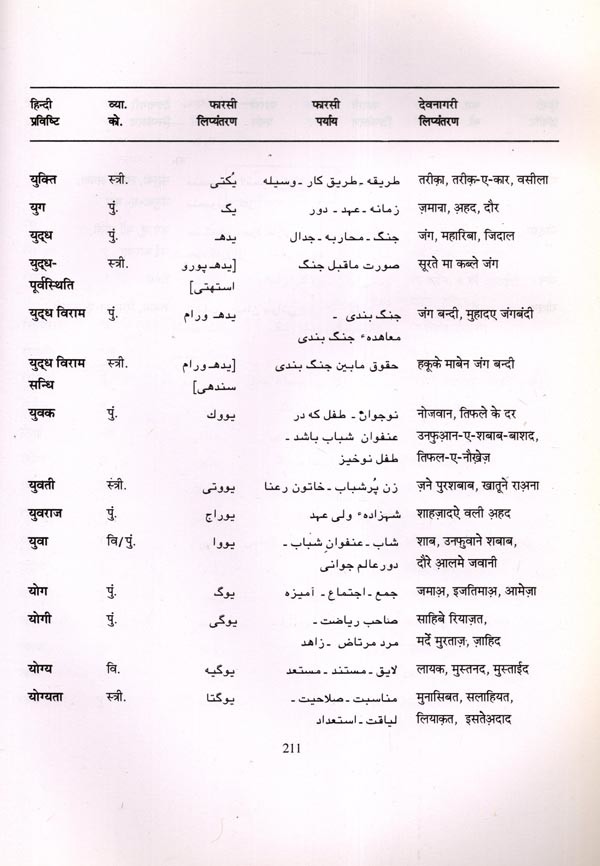 हिन्दी व्या. फारसी फारसी देवनागरी
प्रविष्टि को. लिप्यंतरण पर्याय लिप्यंतरण
युक्ति स्त्री. یُکتی طریقه ـ طریق کار ـ وسیله तरीक़ा, तरीक़-ए-कार, वसीला
युग पुं. یگ زمانه ـ عهد ـ دور ज़माना, अह़द, दौर
युद्ध पुं. یدهـ جنگ ـ محاربه ـ جدال जंग, महारिबा, जिदाल
युद्ध- स्त्री. [یدهـ پورو صورت ماقبل جنگ सूरते मा कब्ले जंग
पूर्वस्थिति استهتی]
युद्ध विराम पुं. یدهـ ورام جنگ بندی ـ जंग बन्दी, मुहादए जंगबंदी
معاهدهٔ جنگ بندی
युद्ध विराम स्त्री. [یدهـ ورام حقوق مابین جنگ بندی हकूके माबेन जंग बन्दी
सन्धि سندهی]
युवक पुं. یووك نوجوان ـ طفل که در नोजवान, तिफले के दर
عنفوان شباب باشد ـ उनफुआन-ए-शबाब-बाशद,
طفل نوخیز तिफल-ए-नौख़ेज़
युवती स्त्री. یووتی زن پُرشباب ـ خاتون رعنا ज़ने पुरशबाब, खातूने राअना
युवराज पुं. یوراج شهزادهٔ ولی عهد शाहज़ादऐ वली अहद
युवा वि/पुं. یووا شاب ـ عنفوان شباب ـ शाब, उनफुवाने शबाब,
دور عالم جوانی दौरे आलमे जवानी
योग पुं. یوگ جمع ـ اجتماع ـ آمیزه जमाअ़, इजतिमाअ़, आमेज़ा
योगी पुं. یوگی صاحب ریاضت ـ साहिबे रियाज़त,
مرد مرتاض ـ زاهد मर्दे मुरताज़, ज़ाहिद
योग्य वि. یوگیه لایق ـ مستند ـ مستعد लायक, मुस्तनद, मुस्ताईद
योग्यता स्त्री. یوگتا مناسبت ـ صلاحیت ـ मुनासिबत, सलाहियत,
لیاقت ـ استعداد लियाक़त, इसतेअ़दाद
211